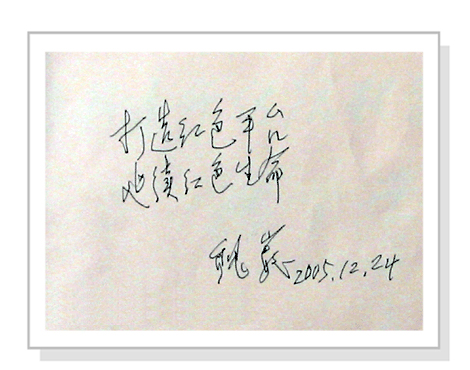 打造红色平台
延续红色生命
魏巍 2005.12.24